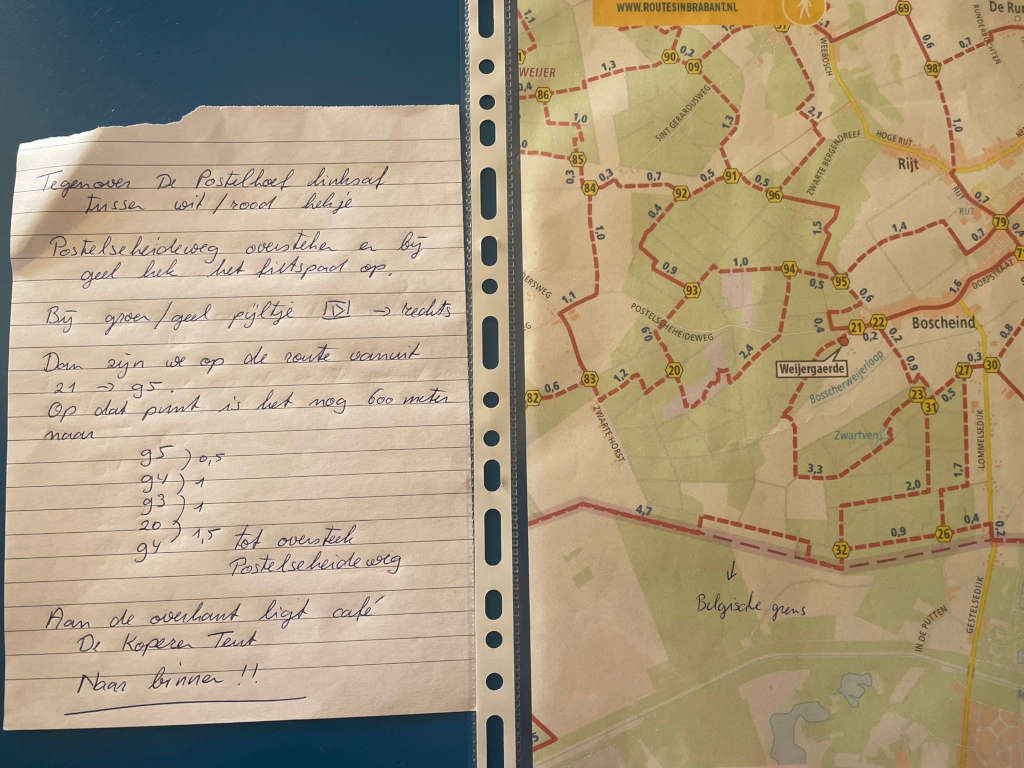 Tegenover De Postelhoef linksaf
tussen wit/rood hekje
Postelseheideweg oversteken en bij
geel hek het fietspad op.
Bij groen/geel pijltje → rechts
Dan zijn we op de route vanuit
21 → 95.
Op dat punt is het nog 600 meter
naar
95
94
93
20
94
0,5
1
1
1,5 tot oversteek
Postelseheideweg
Aan de overkant ligt café
De Koperen Tent
Naar binnen !!
WWW.ROUTESINBRABANT.NL
WEIJER
1,3
90
0,2
09
86
0,4
1,0
85
0,3
84
0,3
0,7
92
0,5
91
0,5
96
1,3
2,1
SINT GERARDUSWEG
ZWARTE BERGENDREEF
WEEBOSCH
HOGE RIJT
Rijt
69
De Run
0,6
98
0,7
RUNDERBOCHTEN
1,0
RIJT
RIJT
0,7
79
0,4
1,4
0,7
1,6
DORPSTRAAT
0,4
1,0
0,9
1,0
94
0,5
95
1,5
0,6
93
1,1
POSTELSCHEHEIDEWEG
0,9
2,4
0,4
21
22
0,2
0,2
Boscheind
Weijergaerde
Bosscherweijerloop
0,9
0,3
27
30
82
0,6
83
1,2
20
23
31
0,5
ZWARTE HORST
Zwartven
LOMMELSEDIJK
3,3
1,7
2,0
4,7
0,9
26
0,4
0,2
32
Belgische grens
IN DE PUTTEN
GESTELSEDIJK